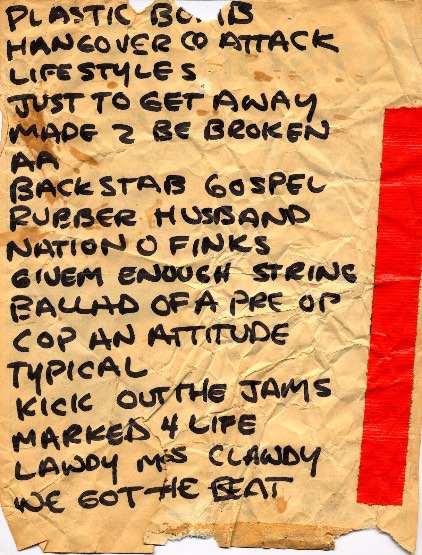 PLASTIC BOMB
HANGOVER ∞ ATTACK
LIFESTYLES
JUST TO GET AWAY
MADE 2 BE BROKEN
AA
BACKSTAB GOSPEL
RUBBER HUSBAND
NATION O FINKS
GIVEM ENOUGH STRING
BALLAD OF A PRE OP
COP AN ATTITUDE
TYPICAL
KICK OUT THE JAMS
MARKED 4 LIFE
LAWDY MSS CLAWDY
WE GOT THE BEAT